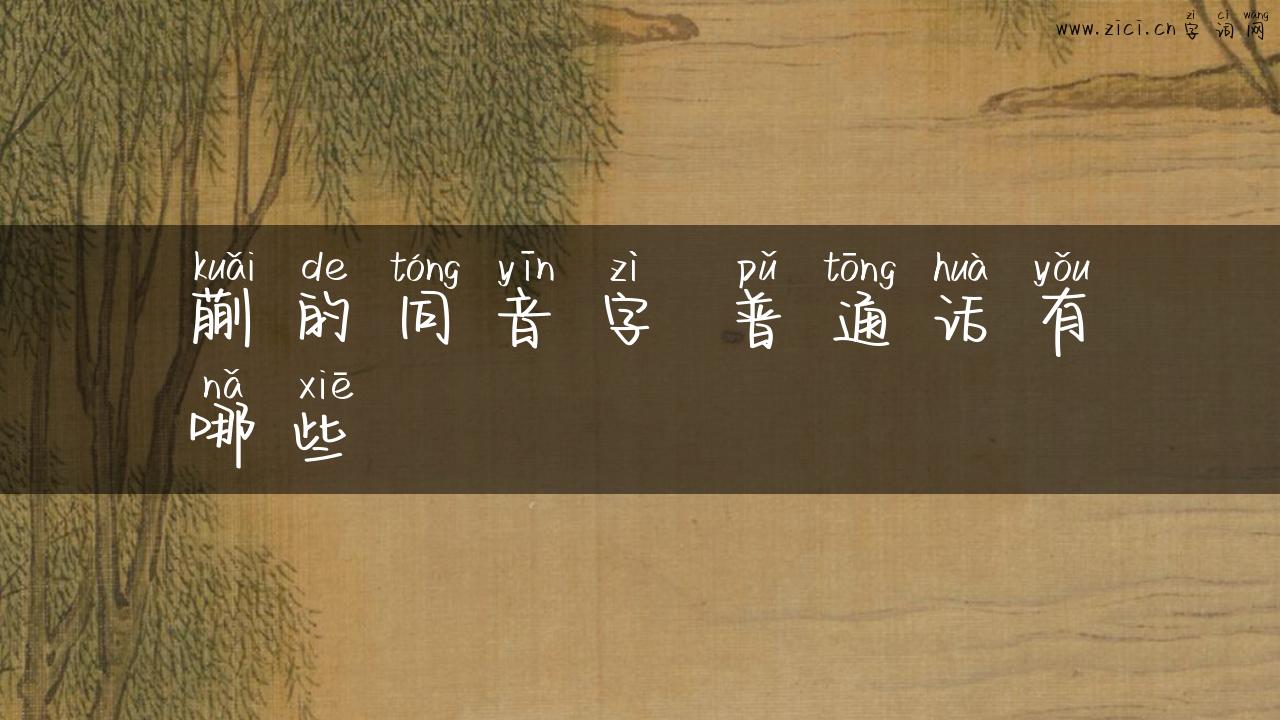 zì cí wǎng
www.zici.cn字词网
kuǎi de tóng yīn zì pǔ tōng huà yǒu
蒯的同音字 普通话有
nǎ xiē
哪些